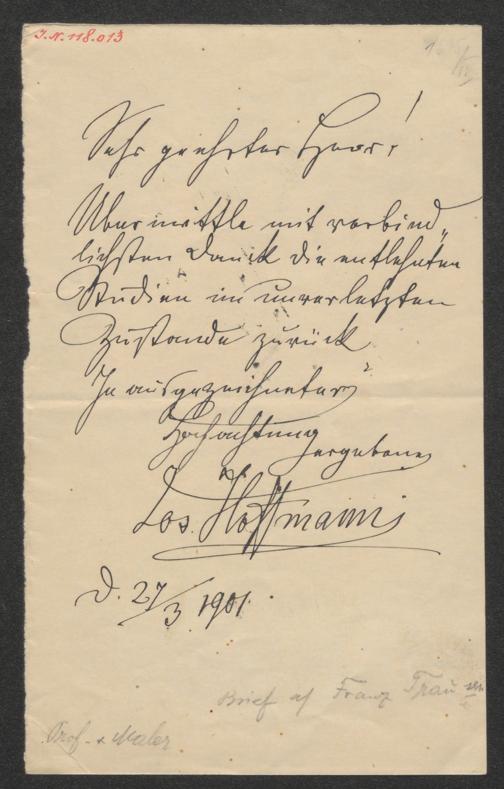 I.N. 118.013
Sehr geehrter Herr!
Übermittle mit verbind„
lichsten Danck die entlehnten
Studien im unverletzten
Zustande zurück
In ausgezeichneter
Hochachtung
ergebener
Jos. Hoffmann
d. 27/3 1901.
Brief an Franz Trau sen
Prof. + Maler